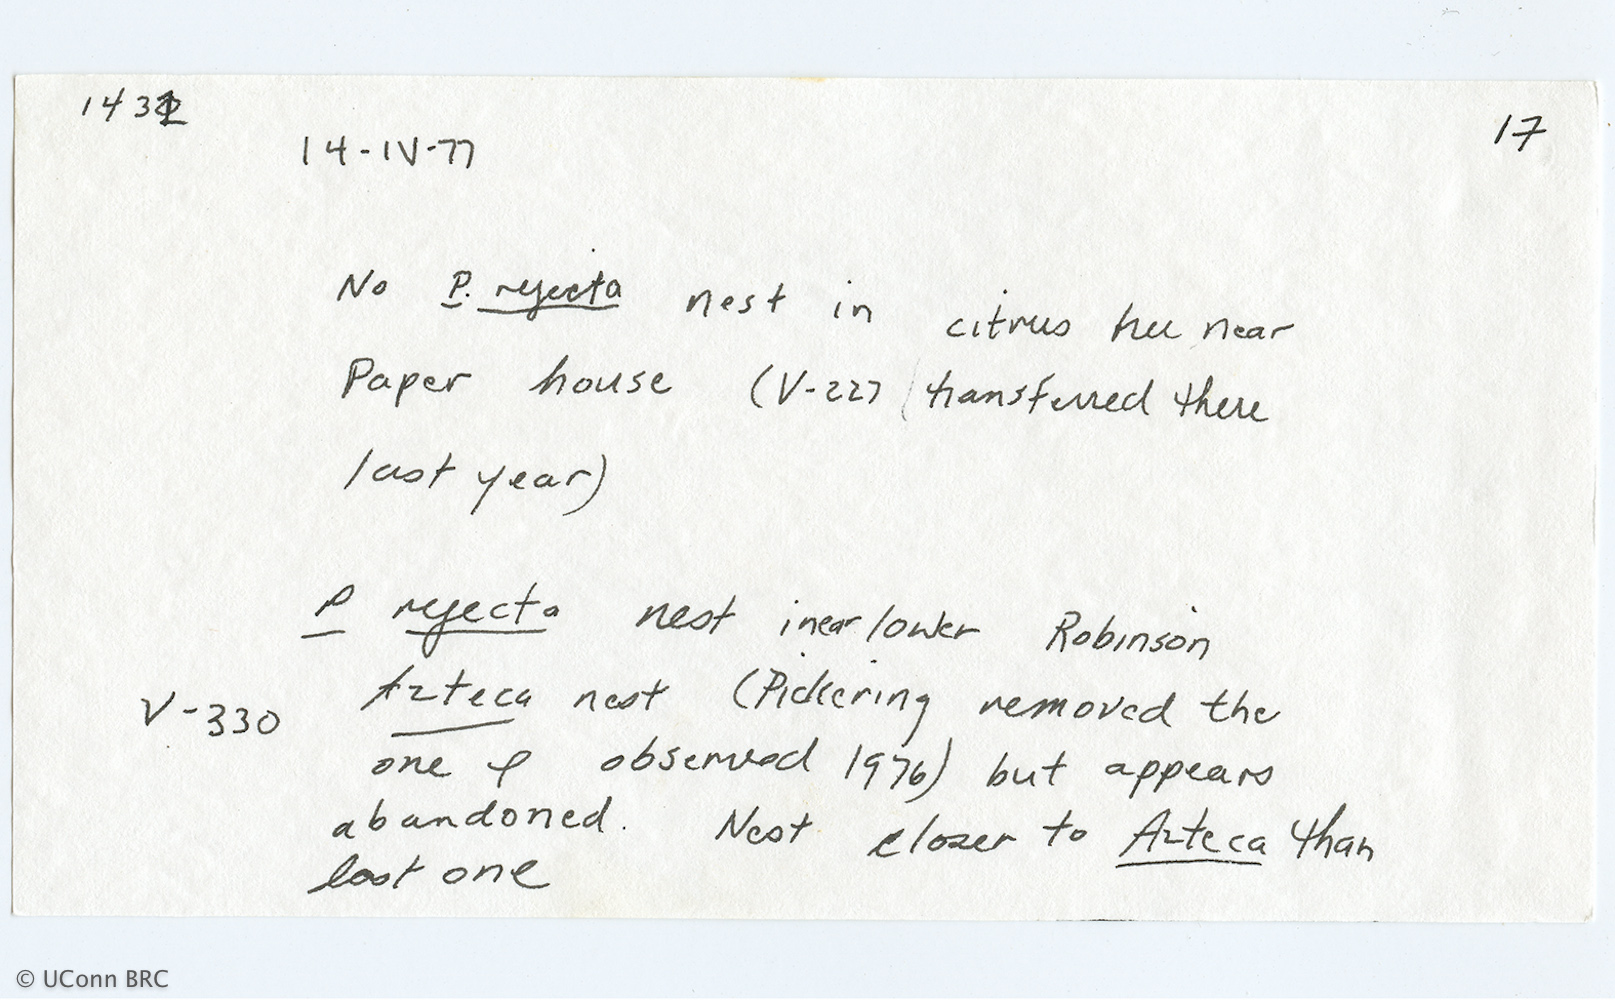 1432
17
14-IV-77
No P. rejecta nest in citrus tree near
Paper house (V-227 transferred there
last year)
P rejecta nest near lower Robinson
V-330 Azteca nest (Pickering removed the
one I observed 1976) but appears
abandoned. Nest closer to Azteca than
last one
© UConn BRC